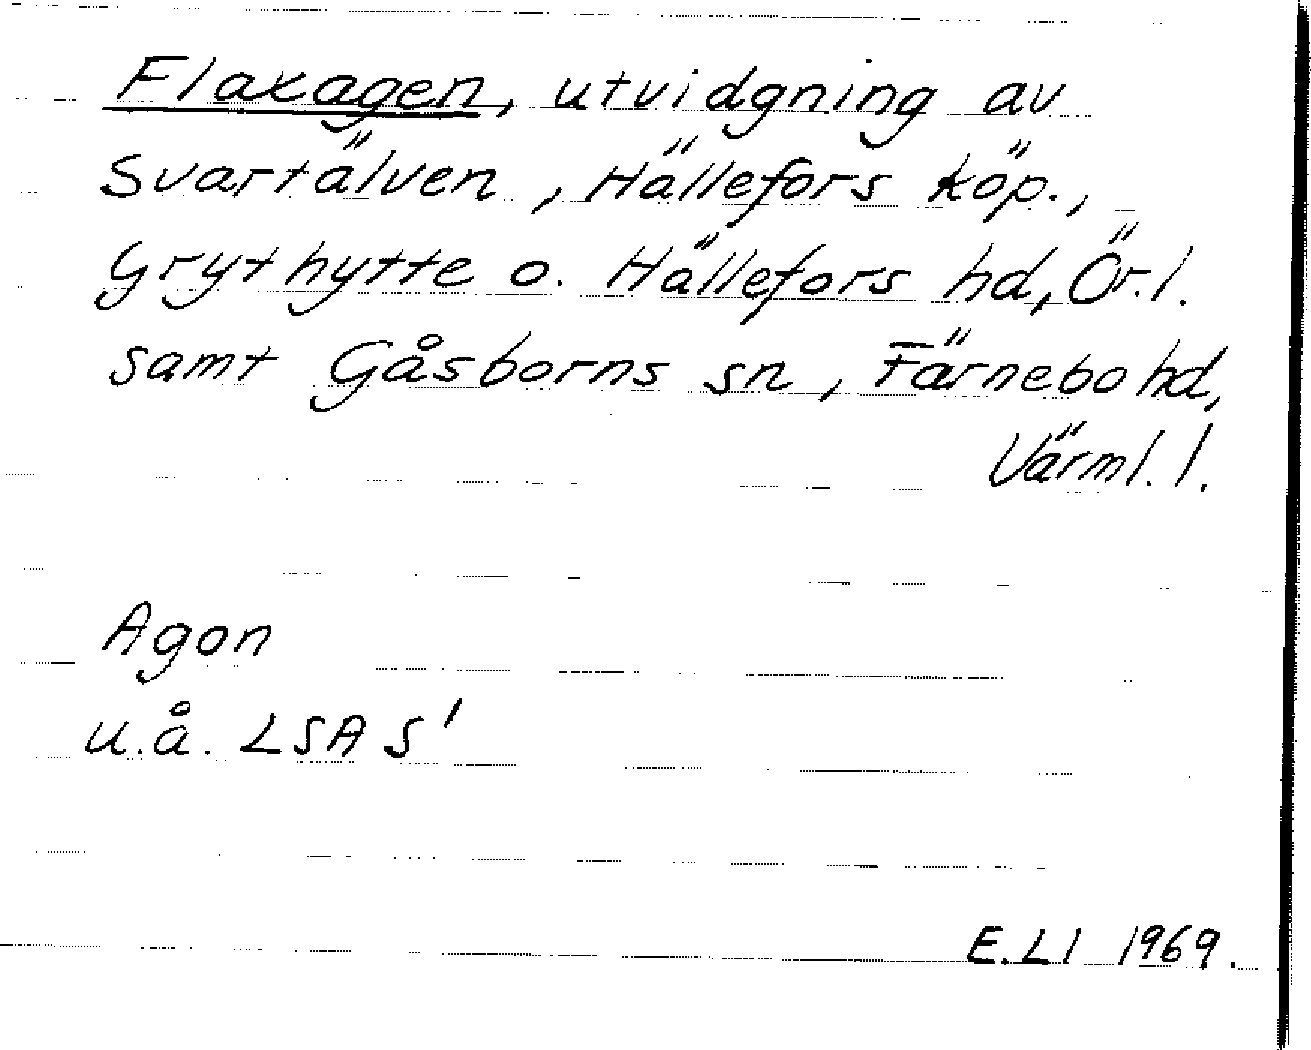 Flaxagen, utvidgning av
Svartälven, Hällefors köp.,
Grythytte o. Hällefors hd, Ör. l.
samt Gåsborns sn, Färnebo hd,
Värml. l.
Agon
u.å. LSA S1
E. LI 1969.